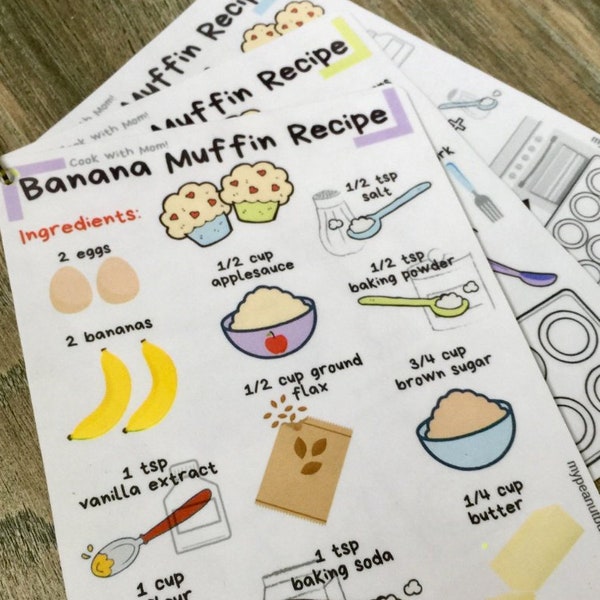 Muffin Recipe
Cook With Mom!
Muffin Recipe
Cook With Mom!
Banana Muffin Recipe
Ingredients:
2 eggs
1/2 cup
applesauce
1/2 tsp
salt
1/2 tsp
baking powder
2 bananas
1/2 cup ground
flax
3/4 cup
brown sugar
1 tsp
vanilla extract
1/4 cup
butter
1 tsp
baking soda
1 cup